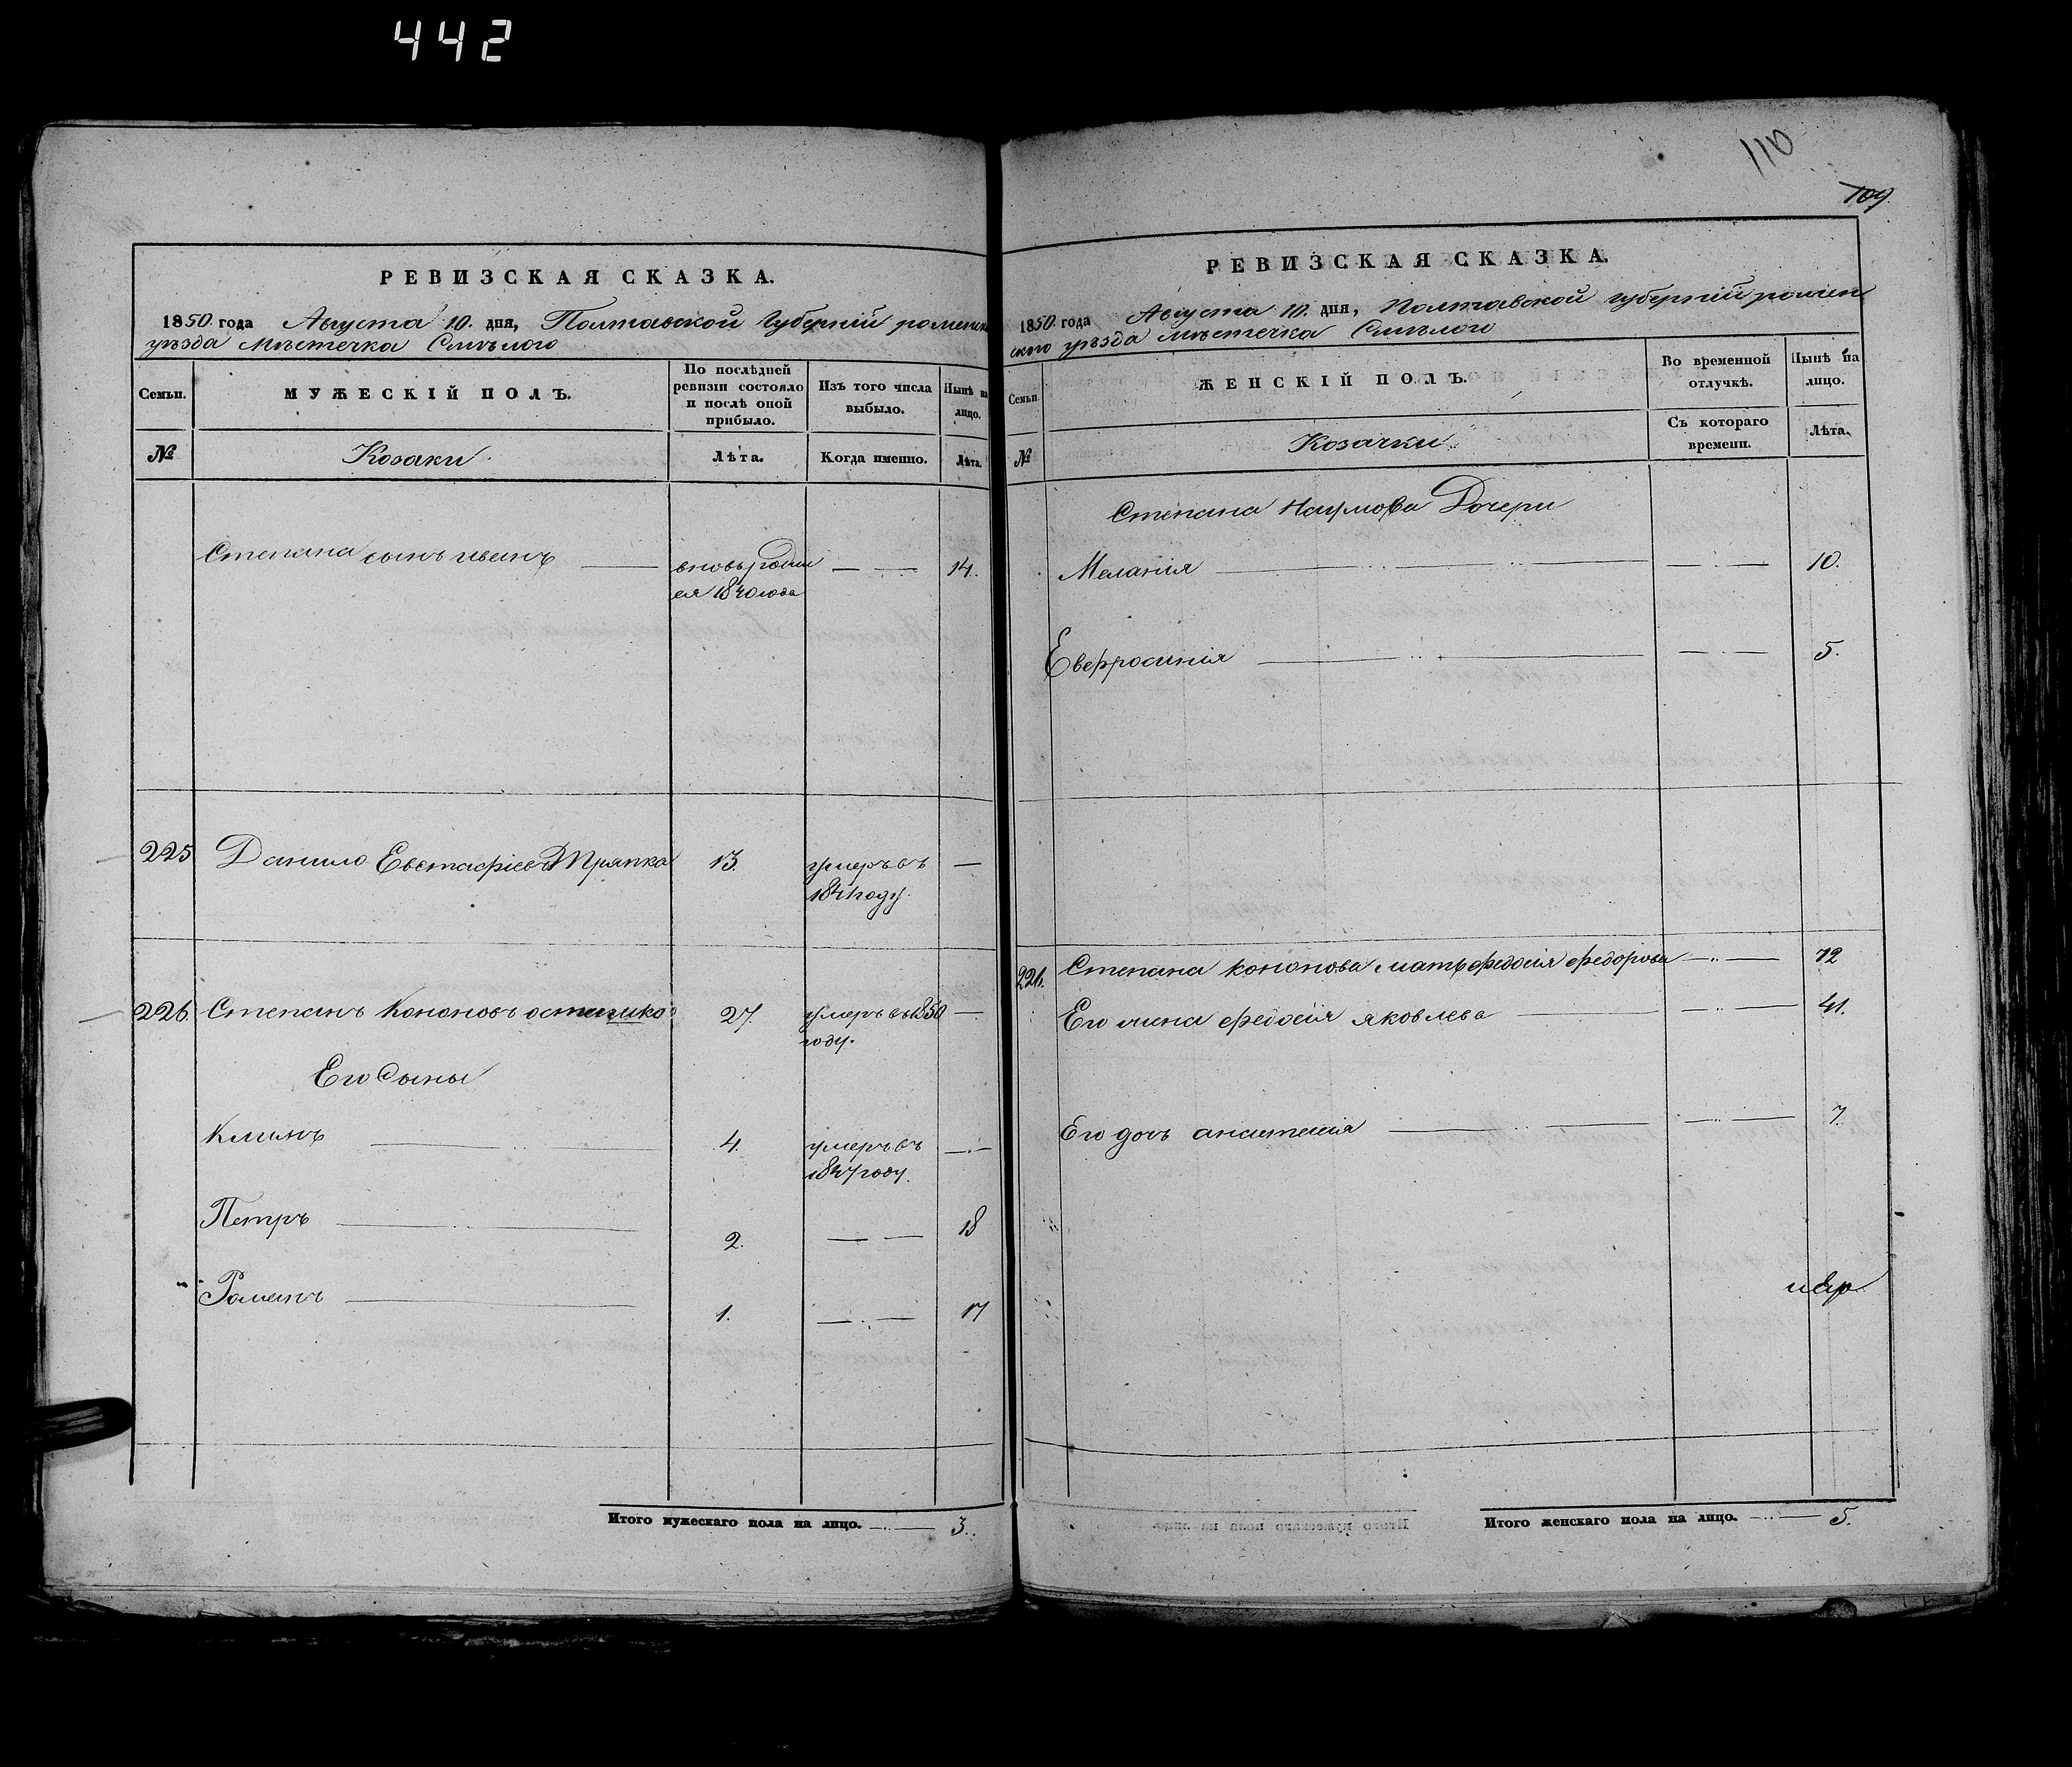 442
110
109
РЕВИЗСКАЯ СКАЗКА.
1850 года Августа 10. дня, Полтавской Губернiй роменск
уѣзда Мѣстечка Смѣлого
Семьи.
МУЖЕСКІЙ ПОЛЪ.
По послѣдней
ревизіи состояло
и послѣ оной
прибыло.
Изъ того числа
выбыло.
Нынѣ на
лицо.
№
Козаки
Лѣта.
Когда именно.
Лѣта.
Степана сынъ иванъ
вновь родил
ся 1840 года
14.
225 Данило Евстафiевъ Тряпка 13. умеръ въ —
1841 году.
226. Степанъ Кононовъ 27. умеръ въ 1850 —
году.
Его Сыны
Климъ 4. умеръ въ
1847 году.
Петръ 2. — — 18
Романъ 1. — 17
Итого мужескаго пола на лицо. — 3.
РЕВИЗСКАЯ СКАЗКА.
1850 года Августа 10. дня, Полтавской губернiй ромен
ского уѣзда мѣстечка Смѣлого
Семьи
ЖЕНСКІЙ ПОЛЪ.
Во временной
отлучкѣ.
Нынѣ на
лицо.
№
Козачки
Съ котораго
времени.
Лѣта.
Степана Наумова Дочери
Меланiя 10.
Евфросинiя 5.
226. Степана кононова мать федосiя федорова 72
Его жена федосiя яковлева 41.
Его дочь анастасiя 7.
Итого женскаго пола на лицо. — 5.